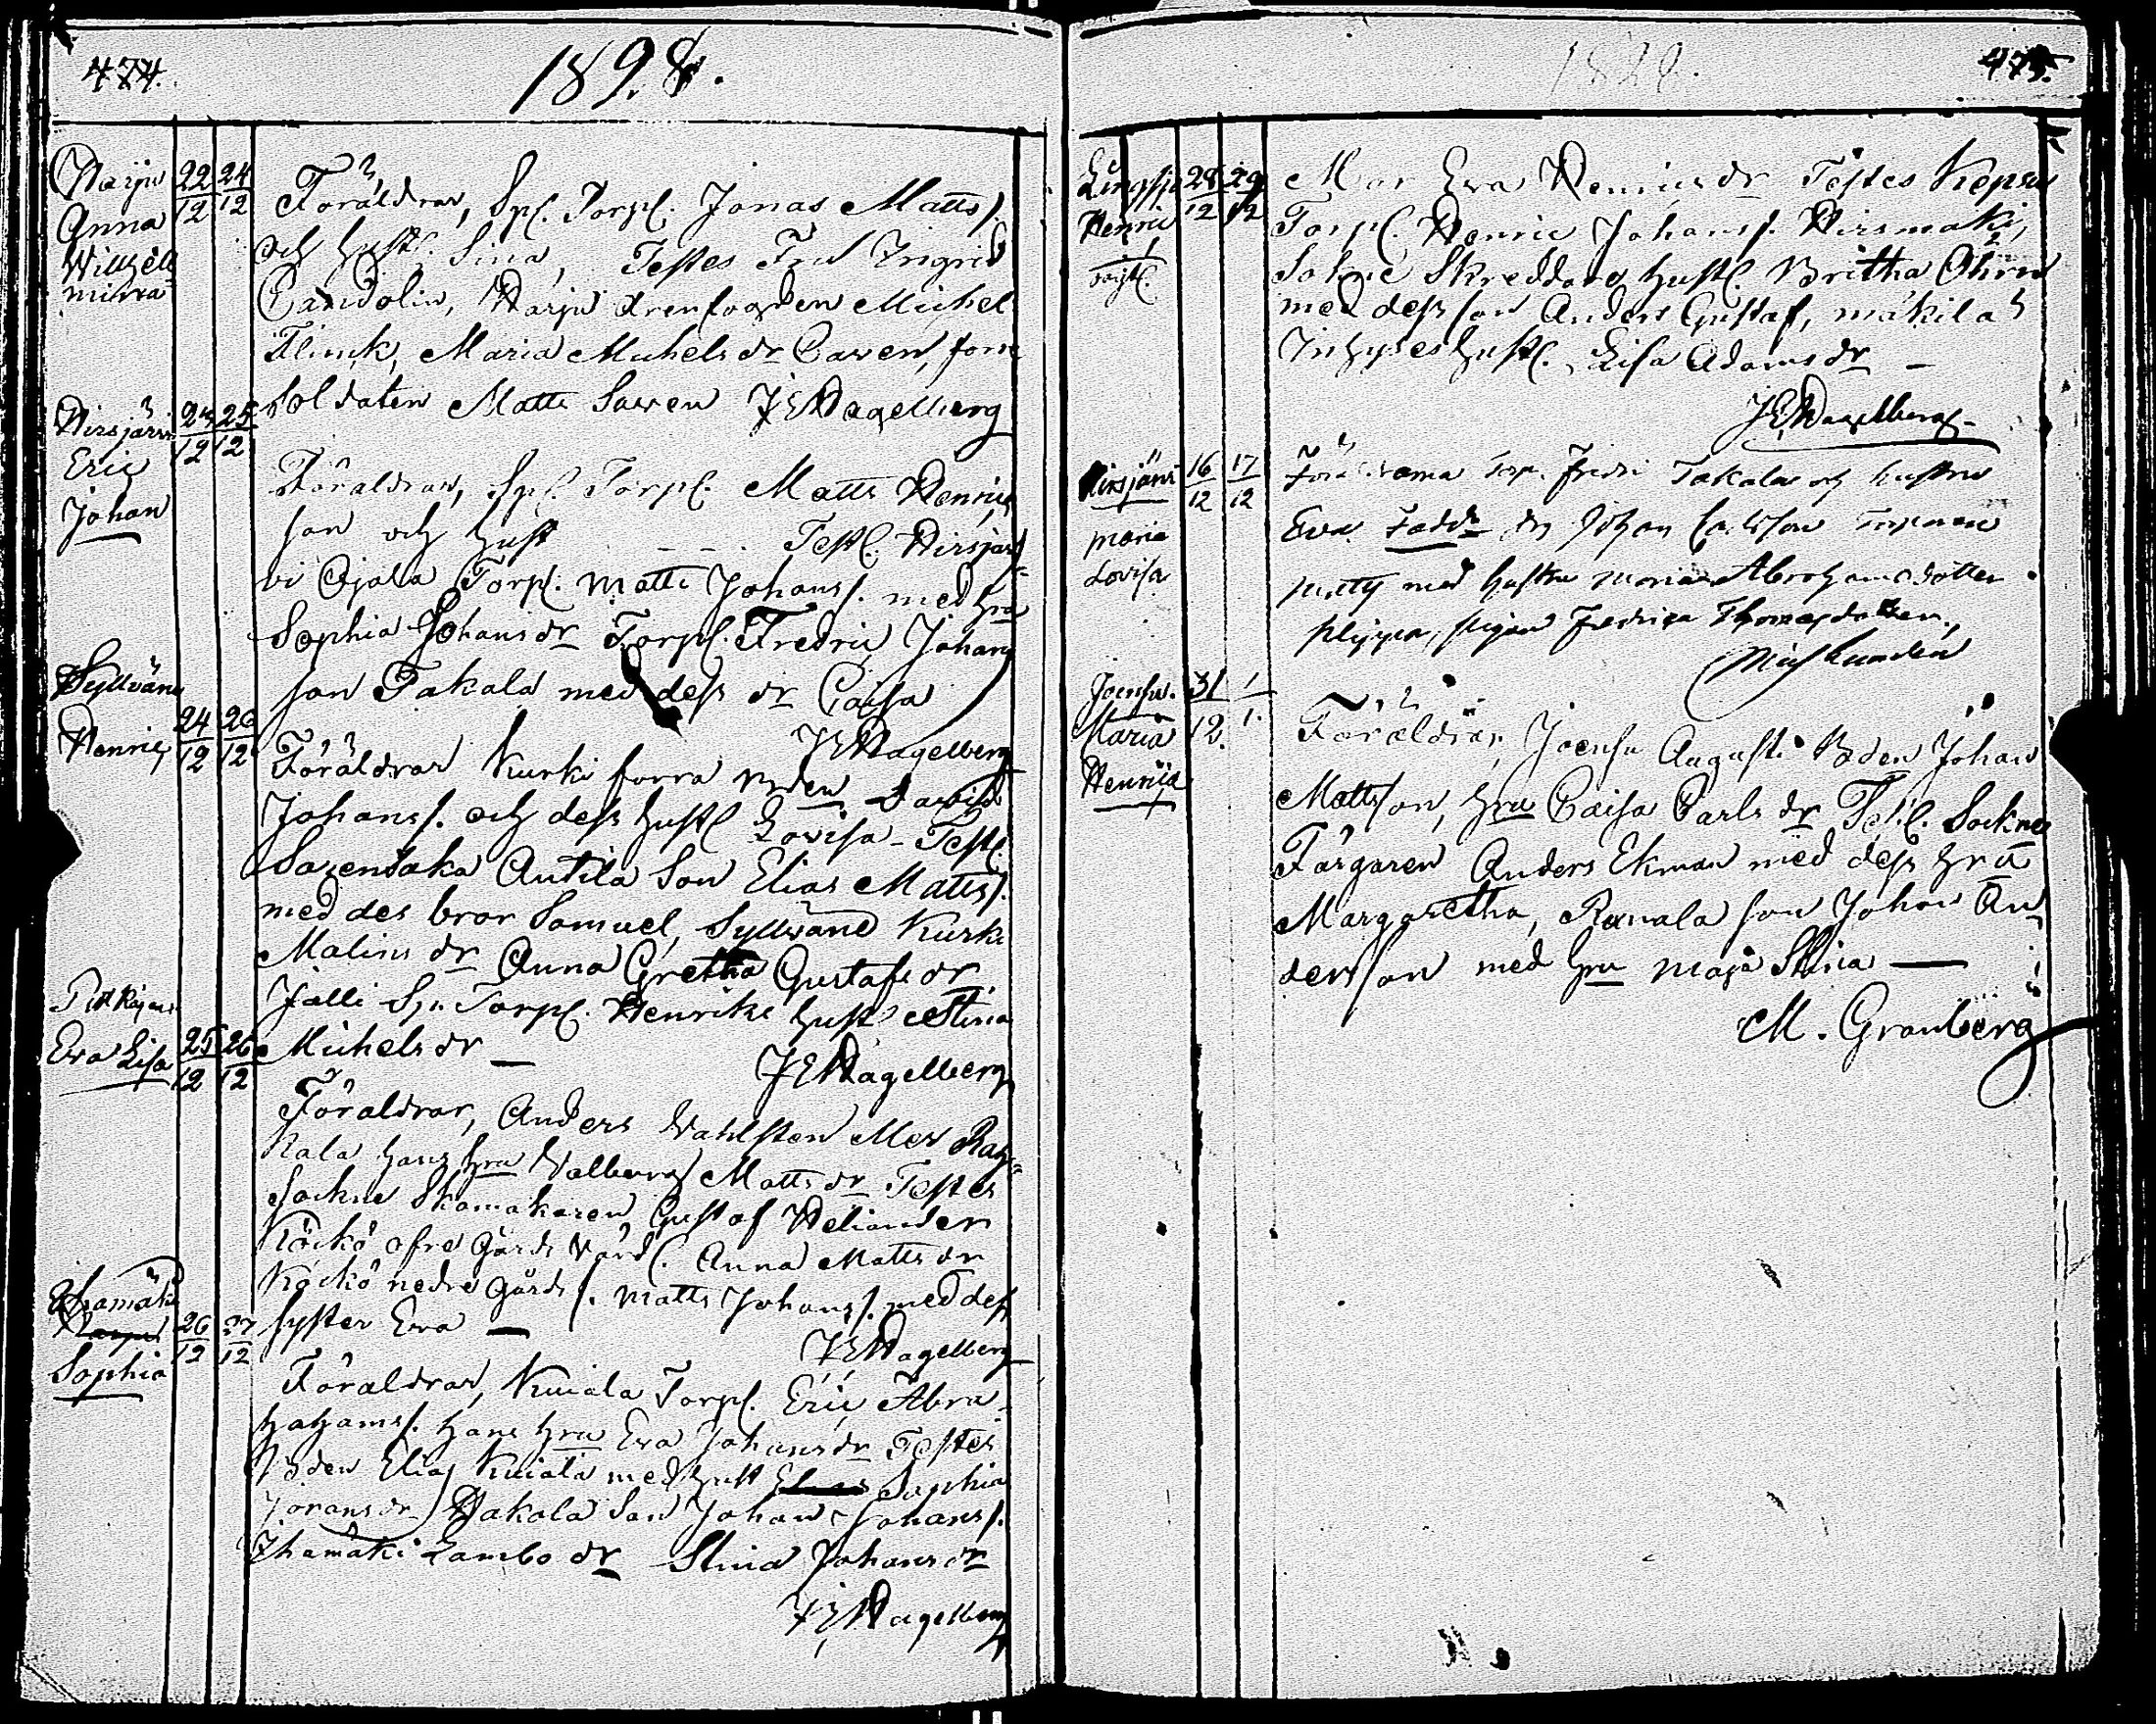 474.
1828.
Harju 22/12 24/12
Anna
Wilhel
mina
Föräldrar, Spl. Torpl. Jonas Matts s.
och hust. Lina, Testes Frul Ingrid
Candolin, Harju drenfogden Michel
Flinck, Maria Michels dr Caven, förre
Soldaten Matts Saven JEHagelberg
Hirsjärvi 24/12 25/12
Eric
Johan
Föräldrar, Spl. Torpl. Matts Henrics
son och hust - - . Testl. Hirsjär
vi Ojala Torpl. Matts Johans s. med hru
Sophia Johans dr Torpl. Fredric Johans
son Takala med dess dr Caisa
JEHagelberg
Syllvänä
Henric 24/12 26/12
Föräldrar Kurki förra Boden David
Johans s. och dess hustl Lovisa - Testl.
Antila Son Elias Matts s.
med des bror Samuel, Syllväne Kurki
Malins dr Anna Gretha Gustafs dr
Jälli Spl. Torpl. Henriks hust Stina
Michels dr — JEHagelberg
Eva Lisa 25/12 26/12
Föräldrar, Anders Vahlsten
kala hans hru Valborg Matts dr Testes
Sockne Skomakaren Gustaf Heliander
Köckö öfre Gårds Värd. Anna Matts dr
Köckö nedre Gårds s. Matts Johans s. med dess
syster Eva — JEHagelberg
Ihamäki
Sophia 26/12 27/12
Föräldrar, Kuiala Torpl. Eric Abra-
hams s. hans hru Eva Johans dr Testes
Boden Elias Kuiala med hust Sophia
Jörans dr Hakala Son Johan Johans s.
Ihamäki Lambo dr Stina Johans dr
JEHagelberg
1828.
475.
28/12 29/12
Henric
Mor Eva Henrics dr Testes Kepsu
Torpl. Henric Johans s. Hirsmäki,
Sokne Skreddars hustl. Britha Öhrn
med dess son Anders Gustaf, mäkilä
Inhyses hustl. Lisa Adams dr —
JEHagelberg.
Hirsjärvi 16/12 17/12
Maria
Lovisa
Föräldrarna Torp. Fredr. Takala och hustru
Eva. Fadd. Dr Johan Carlsson
med hustru Maria Abrahamsdotter
pigan Fredrica Thomasdotter.
Joensu. 31/12 1/1.
Maria
Henrica
Föräldrar, Joensu Augusti Boden Johan
Mattsson, hru Caisa Carls dr Testl. Sockne
Färgaren Anders Ekman med dess hru
Margaretha, Ranala son Johan An
dersson med hru Maja Stina —
M. Granberg